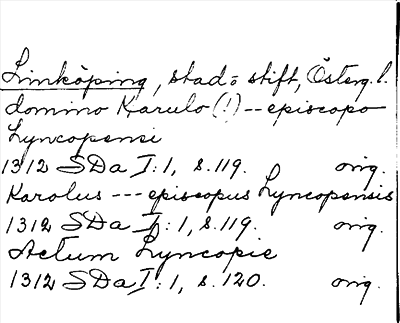 Linköping, stad o stift, Österg. l.
domino Karulo (!) -- episcopo
Lyncopensi
1312 SDa I: 1, s. 119. orig.
Karolus --- episcopus Lyncopensis
1312 SDa I: 1, s. 119. orig.
Actum Lyncopie
1312 SDa I: 1, s. 120. orig.